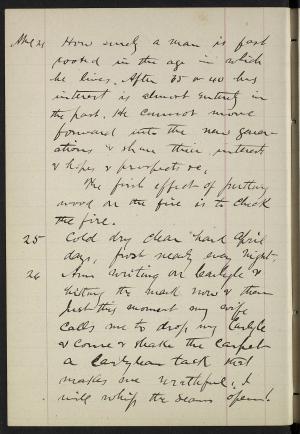 April 21 How surely a man is fast
rooted in the age in which
he lives. After 35 or 40 his
interest is almost entirely in
the past. He cannot move
forward into the new gener-
ations & share their interests
& hopes & prospects &c.
The first effect of putting
wood on the fire is to check
the fire.
25 Cold dry clear hard April
days, frost nearly every night.
26 Am writing on Carlyle &
hitting the mark now & then
Just this moment my wife
calls me to drop my Carlyle
& come & shake the carpet
a Carlylean task that
makes me wrathful. I
will whip the seams open!